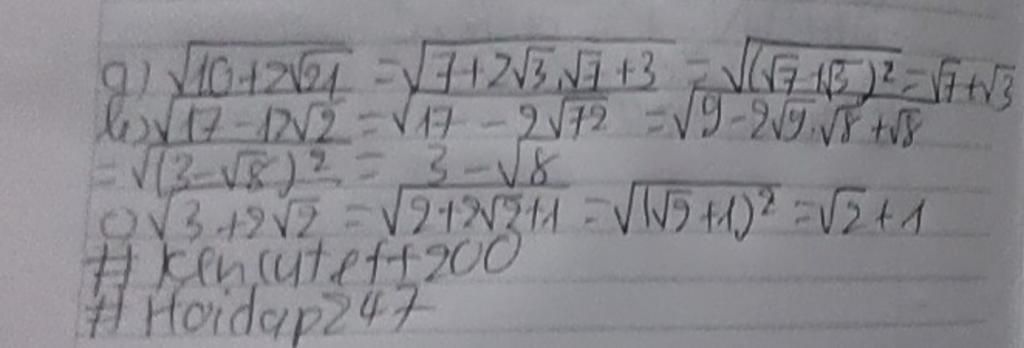 a) √10+2√21 = √7+2√3.√7+3 = √(√7+√3)² = √7+√3
b) √17-12√2 = √17-2√72 = √9-2√9.√8+√8
= √(3-√8)² = 3-√8
c) √3+2√2 = √2+2√2+1 = √(√2+1)² = √2+1
# kencuteff200
# Hoidap247